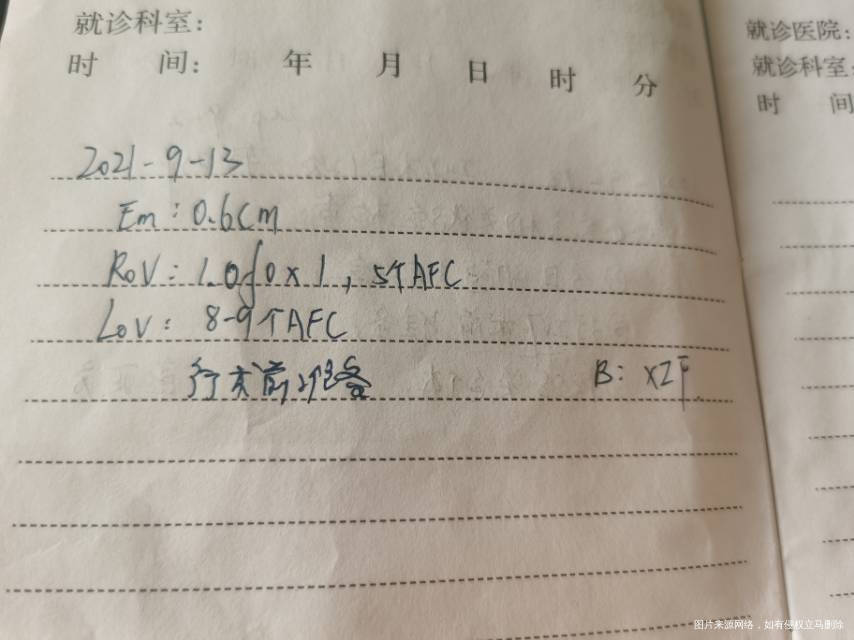 就诊科室:
时 间: 年 月 日 时 分
2021-9-13
Em: 0.6cm
Rov: 1.0 0×1, 5个AFC
Lov: 8-9个AFC
行 前准备 B: XZF
就诊医院:
就诊科室:
时 间
图片来源网络，如有侵权立马删除